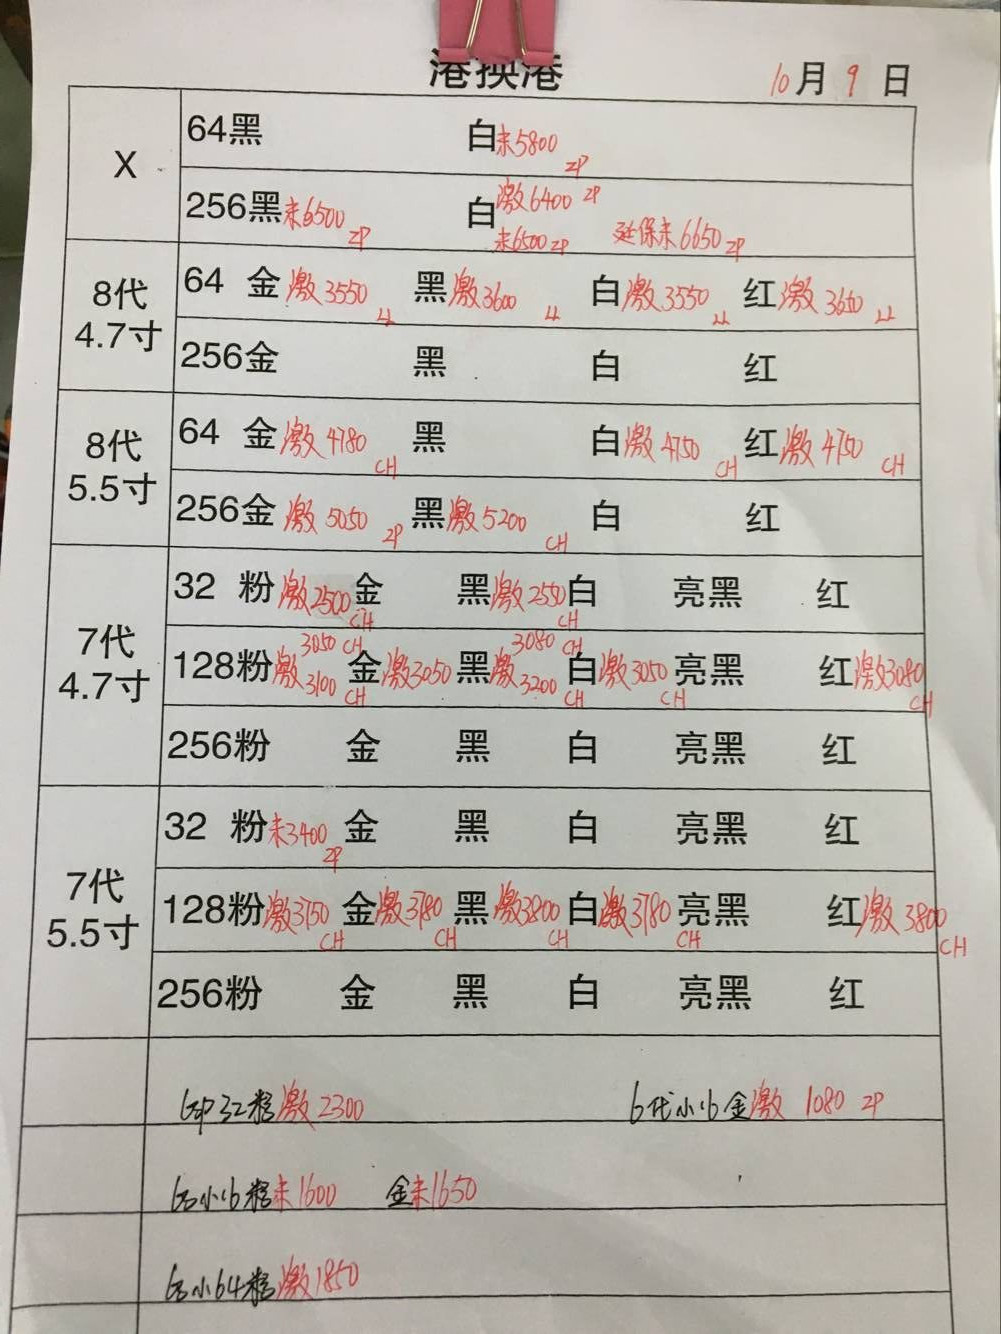 港换港 10月9日
X
64黑 白未5800 ZP
256黑未6500 ZP 白激6400 ZP 未6500 ZP 延保未6650 ZP
8代 4.7寸
64 金激3550 LL 黑激3600 LL 白激3550 LL 红激3600 LL
256金 黑 白 红
8代 5.5寸
64 金激4780 CH 黑 白激4750 CH 红激4750 CH
256金激5050 ZP 黑激5200 CH 白 红
7代 4.7寸
32 粉激2500 CH 金 黑激2550 CH 白 亮黑 红
3050 CH 3080 CH
128粉激3100 CH 金激3050 黑激3200 CH 白激3050 CH 亮黑 红激3080 CH
256粉 金 黑 白 亮黑 红
7代 5.5寸
32 粉未3400 ZP 金 黑 白 亮黑 红
128粉激3750 CH 金激3780 CH 黑激3800 CH 白激3780 CH 亮黑 红激3800 CH
256粉 金 黑 白 亮黑 红
32粉激2300 6代小16金激 1080 ZP
小16粉未1600 金未1650
小64粉激1850